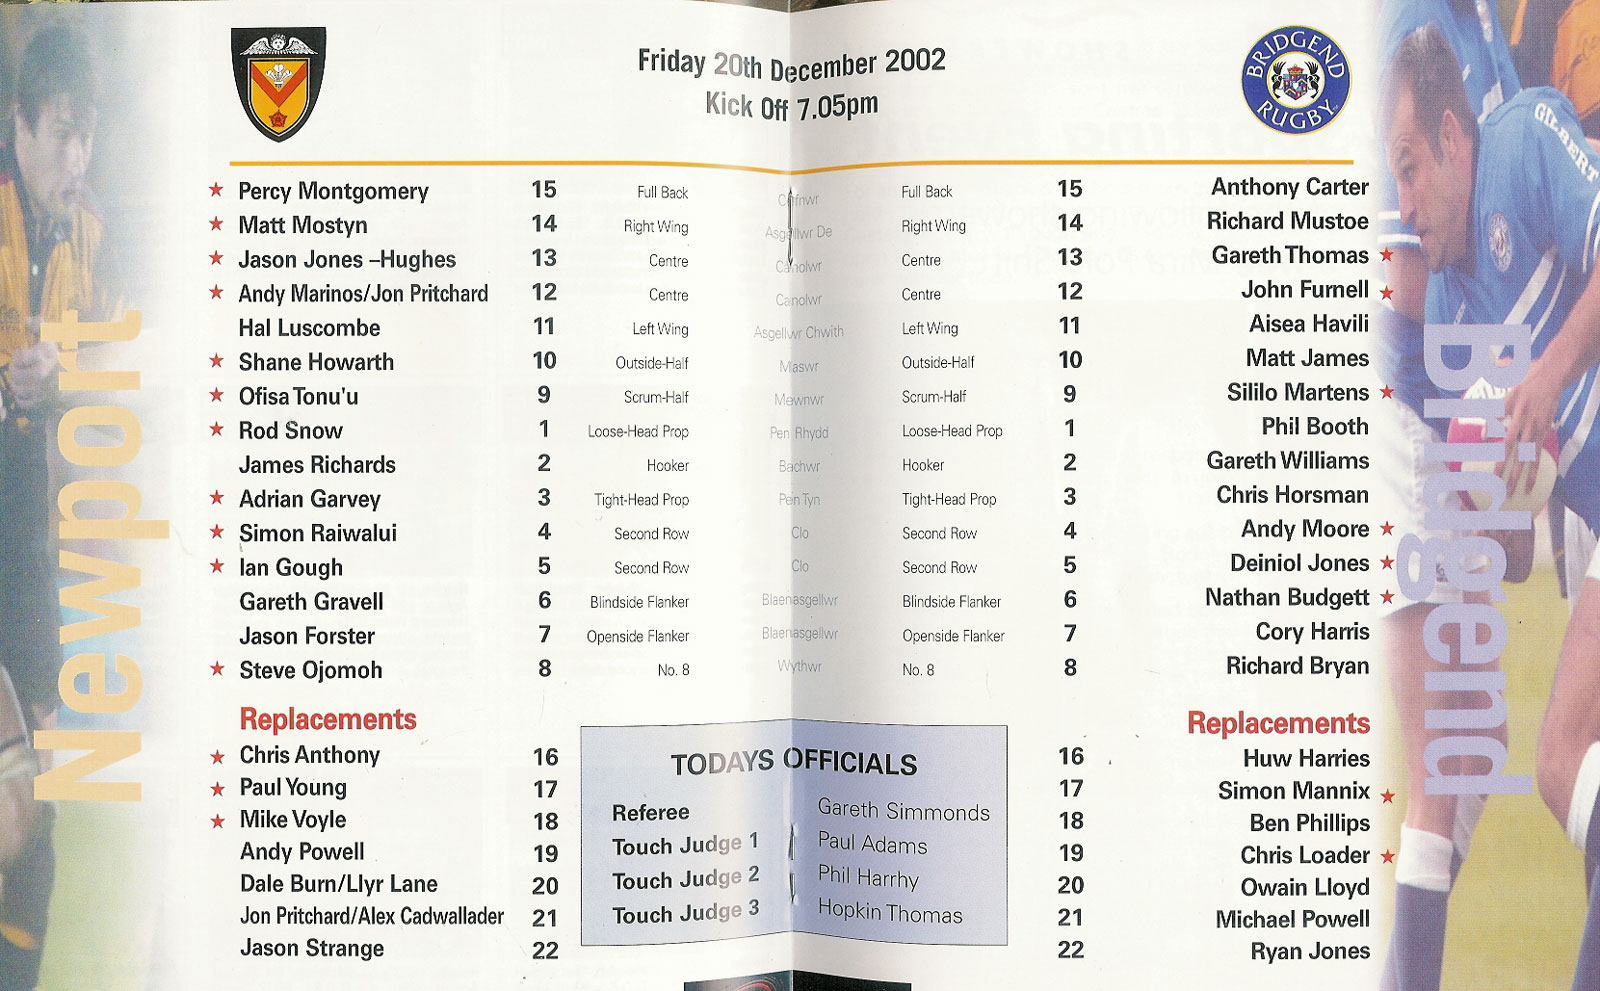 Friday 20th December 2002
Kick Off 7.05pm
BRIDGEND RUGBY
GILBERT
Newport
Bridgend
Percy Montgomery 15 Full Back Cefnwr Full Back 15 Anthony Carter
Matt Mostyn 14 Right Wing Asgellwr De Right Wing 14 Richard Mustoe
Jason Jones –Hughes 13 Centre Canolwr Centre 13 Gareth Thomas
Andy Marinos/Jon Pritchard 12 Centre Canolwr Centre 12 John Furnell
Hal Luscombe 11 Left Wing Asgellwr Chwith Left Wing 11 Aisea Havili
Shane Howarth 10 Outside-Half Maswr Outside-Half 10 Matt James
Ofisa Tonu'u 9 Scrum-Half Mewnwr Scrum-Half 9 Sililo Martens
Rod Snow 1 Loose-Head Prop Pen Rhydd Loose-Head Prop 1 Phil Booth
James Richards 2 Hooker Bachwr Hooker 2 Gareth Williams
Adrian Garvey 3 Tight-Head Prop Pen Tyn Tight-Head Prop 3 Chris Horsman
Simon Raiwalui 4 Second Row Clo Second Row 4 Andy Moore
Ian Gough 5 Second Row Clo Second Row 5 Deiniol Jones
Gareth Gravell 6 Blindside Flanker Blaenasgellwr Blindside Flanker 6 Nathan Budgett
Jason Forster 7 Openside Flanker Blaenasgellwr Openside Flanker 7 Cory Harris
Steve Ojomoh 8 No. 8 Wythwr No. 8 8 Richard Bryan
Replacements
Chris Anthony 16
Paul Young 17
Mike Voyle 18
Andy Powell 19
Dale Burn/Llyr Lane 20
Jon Pritchard/Alex Cadwallader 21
Jason Strange 22
TODAYS OFFICIALS
Referee Gareth Simmonds
Touch Judge 1 Paul Adams
Touch Judge 2 Phil Harrhy
Touch Judge 3 Hopkin Thomas
Replacements
16 Huw Harries
17 Simon Mannix
18 Ben Phillips
19 Chris Loader
20 Owain Lloyd
21 Michael Powell
22 Ryan Jones